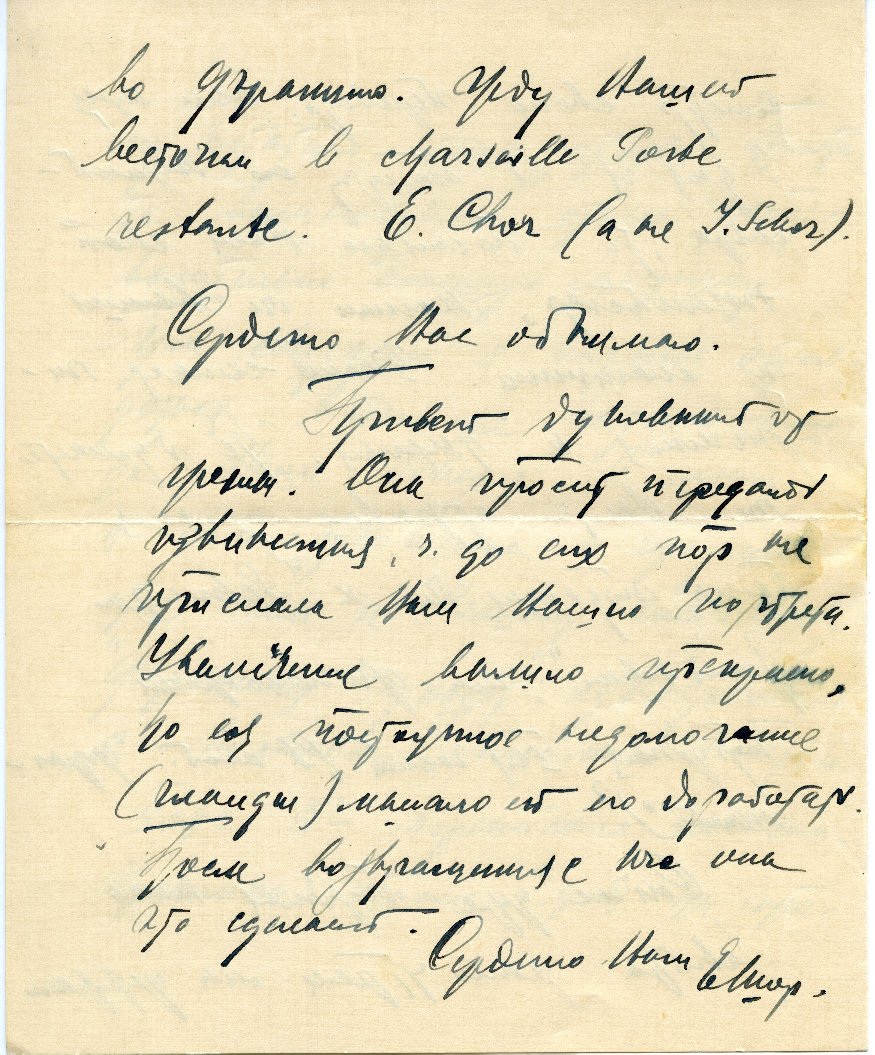 во Францию. Жду Вашей
весточки в Marseille Poste
restante. E. Chor (а не J. Schor).
Сердечно Вас обнимаю.
Привет душевный от
жены. Она просит передать
извинения, ч. до сих пор не
прислала Вам Вашего портрета.
Увеличение вышло прекрасно,
но её постоянное недомогание
(гланды) мешало ей его доработать.
После возвращения с юга она
это сделает.
Сердечно Ваш ЕШор.